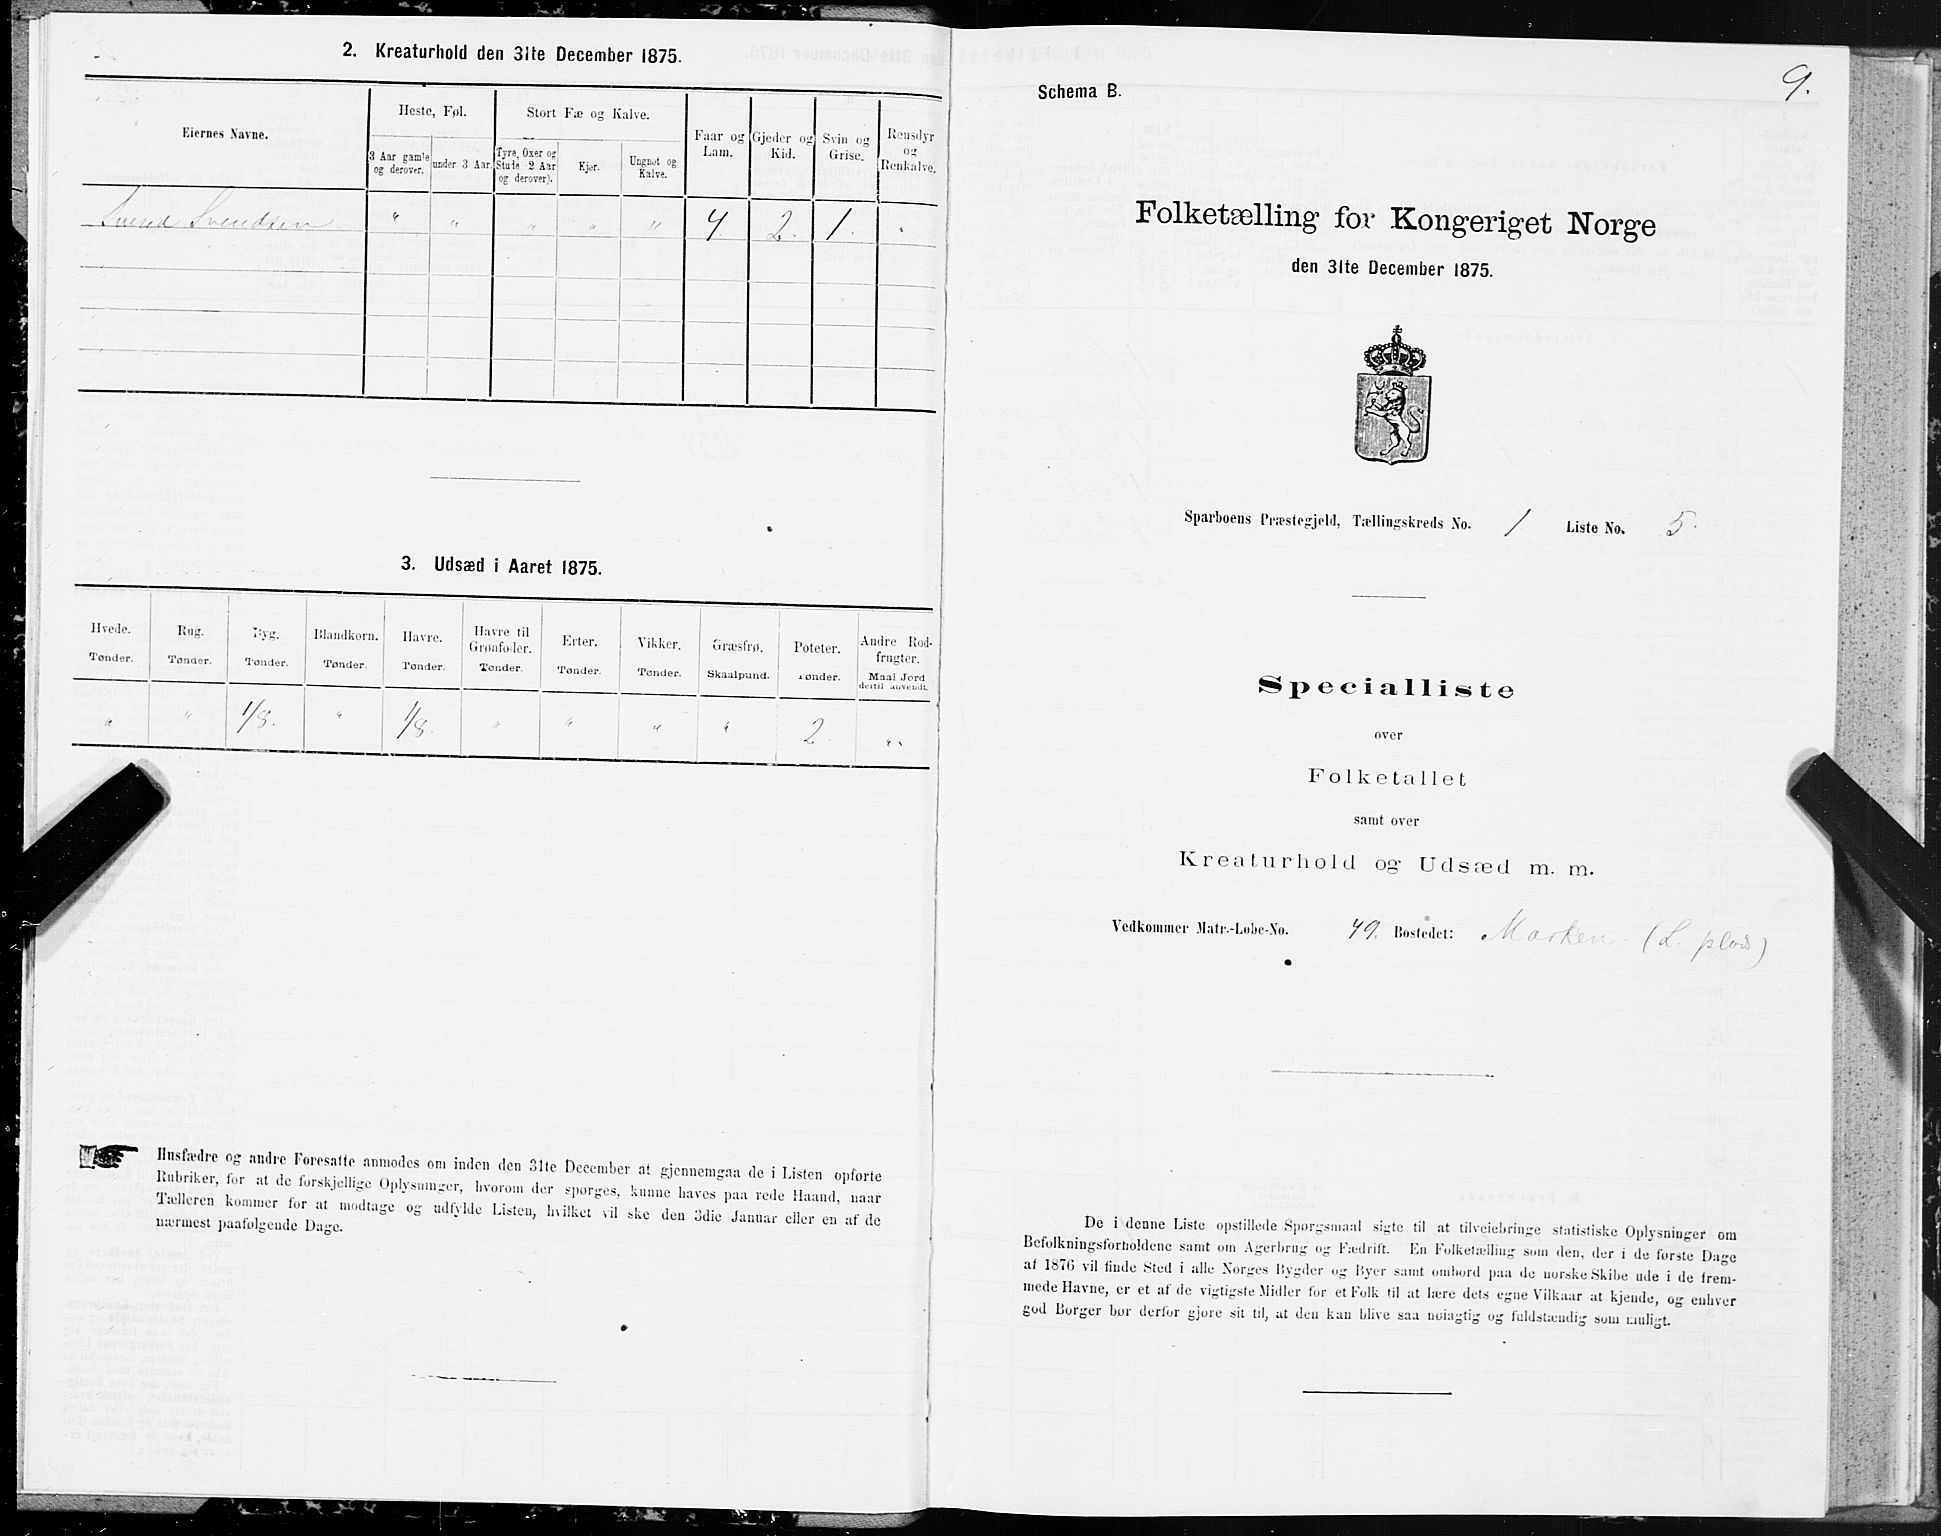 2. Kreaturhold den 31te December 1875.
Eiernes Navne.
Heste, Føl.
Stort Fæ og Kalve.
Faar og Lam.
Gjeder og Kid.
Svin og Grise.
Rensdyr og Renkalve.
3 Aar gamle og derover.
under 3 Aar.
Tyre, Oxer og Stude 2 Aar og derover).
Kjør.
Ungnøt og Kalve.
Svend Svendsen " " " " " 4 2. 1. "
3. Udsæd i Aaret 1875.
Hvede. Tønder.
Rug. Tønder.
Byg. Tønder.
Blandkorn. Tønder.
Havre. Tønder.
Havre til Grønfoder. Tønder.
Erter. Tønder.
Vikker. Tønder.
Græsfrø. Skaalpund.
Poteter. Tønder.
Andre Rodfrugter. Maal Jord dertil anvendt.
" " 1/8. " 1/8. " " " " 2. "
Husfædre og andre Foresatte anmodes om inden den 31te December at gjennemgaa de i Listen opførte
Rubriker, for at de forskjellige Oplysninger, hvorom der spørges, kunne haves paa rede Haand, naar
Tælleren kommer for at modtage og udfylde Listen, hvilket vil ske den 3die Januar eller en af de
nærmest paafølgende Dage.
9.
Schema B.
Folketælling for Kongeriget Norge
den 31te December 1875.
Sparboens Præstegjeld, Tællingskreds No. 1 Liste No. 5.
Specialliste
over
Folketallet
samt over
Kreaturhold og Udsæd m. m.
Vedkommer Matr.-Løbe-No. 49. Bostedet: Marken (L. plads)
De i denne Liste opstillede Spørgsmaal sigte til at tilveiebringe statistiske Oplysninger om
Befolkningsforholdene samt om Agerbrug og Fædrift. En Folketælling som den, der i de første Dage
af 1876 vil finde Sted i alle Norges Bygder og Byer samt ombord paa de norske Skibe ude i de frem-
mede Havne, er et af de vigtigste Midler for et Folk til at lære dets egne Vilkaar at kjende, og enhver
god Borger bør derfor gjøre sit til, at den kan blive saa nøiagtig og fuldstændig som muligt.